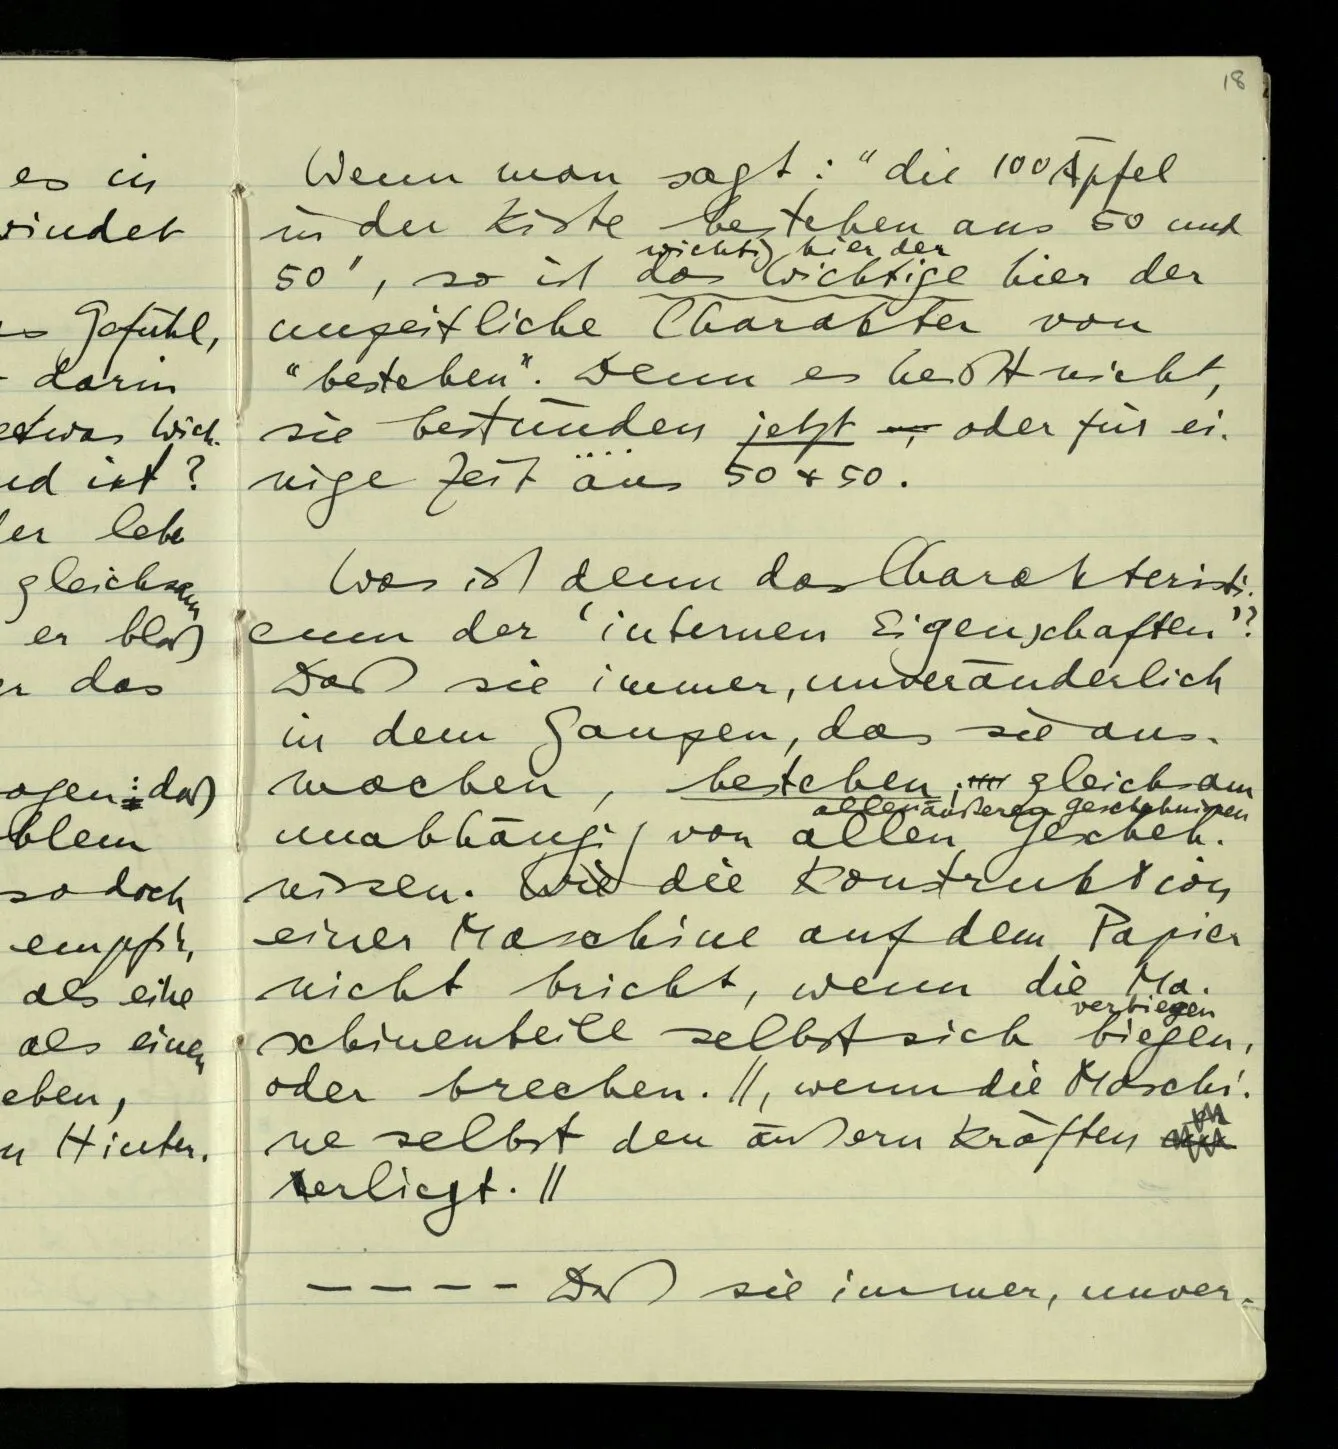 18
es in
windet
Gefühl,
darin
etwas wich-
und ist?
er lebe
gleichsam
er bloß
das
: daß
blem
so doch
empfin
als eine
als einen
eben,
Hinter-
Wenn man sagt: “die 100 Äpfel
in der Kiste bestehen aus 50 und
wichtig hier der
50”, so ist das Wichtige hier der
unzeitliche Charakter von
“bestehen”. Denn es heißt nicht,
sie bestünden jetzt –, oder für ei-
nige Zeit aus 50 + 50.
Was ist denn das Charakteristi-
cum der ‘internen Eigenschaften’?
Daß sie immer, unveränderlich
in dem Ganzen, das sie aus-
machen, bestehen; gleichsam
allen äußeren Geschehnissen
unabhängig von allen Gescheh-
nissen. Wie die Konstruktion
einer Maschine auf dem Papier
nicht bricht, wenn die Ma-
verbiegen
schinenteile selbst sich biegen,
oder brechen. //, wenn die Maschi-
ne selbst den äußern Kräften
erliegt. //
– – – – Daß sie immer, unver-